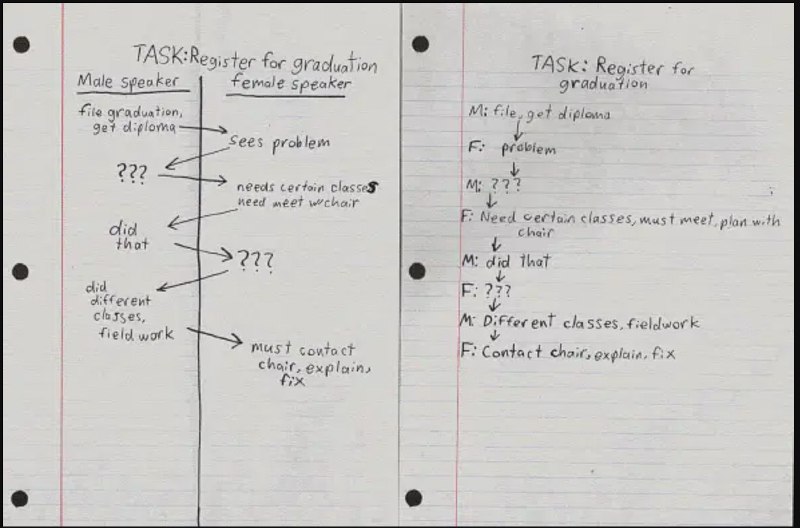 TASK:Register for graduation
Male speaker
female speaker
file graduation,
get diploma
sees problem
???
needs certain classes
need meet w/chair
did
that
???
did
different
classes,
field work
must contact
chair, explain,
fix
TASK: Register for
graduation
M: file, get diploma
F: problem
M: ???
F: Need certain classes, must meet, plan with
chair
M: did that
F: ???
M: Different classes, fieldwork
F: Contact chair, explain, fix